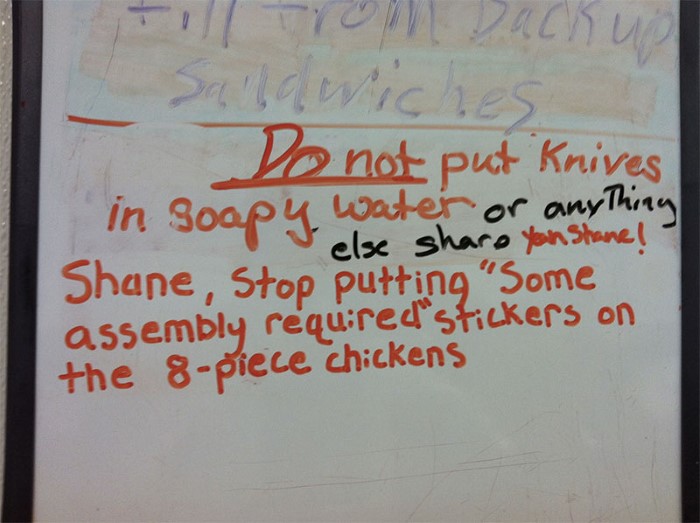 fill from backup
Sandwiches
Do not put Knives
in soapy water or anyThing
else sharp Yeah Shane!
Shane, Stop putting "Some
assembly required" stickers on
the 8-piece chickens